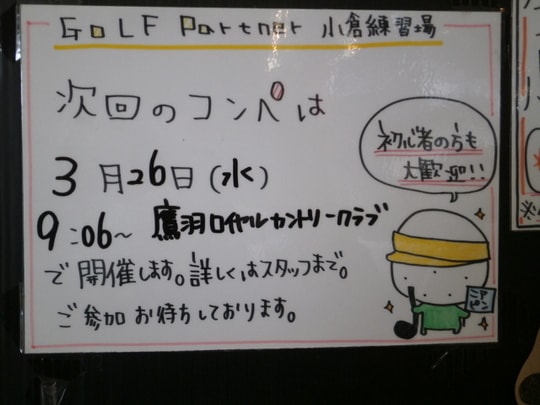 GOLF Partner 小倉練習場
次回のコンペは
初心者の方も
大歓迎!!
3月26日(水)
9:06〜 鷹羽ロイヤルカントリークラブ
で開催します。詳しくはスタッフまで。
ご参加お待ちしております。
ニア
ピン